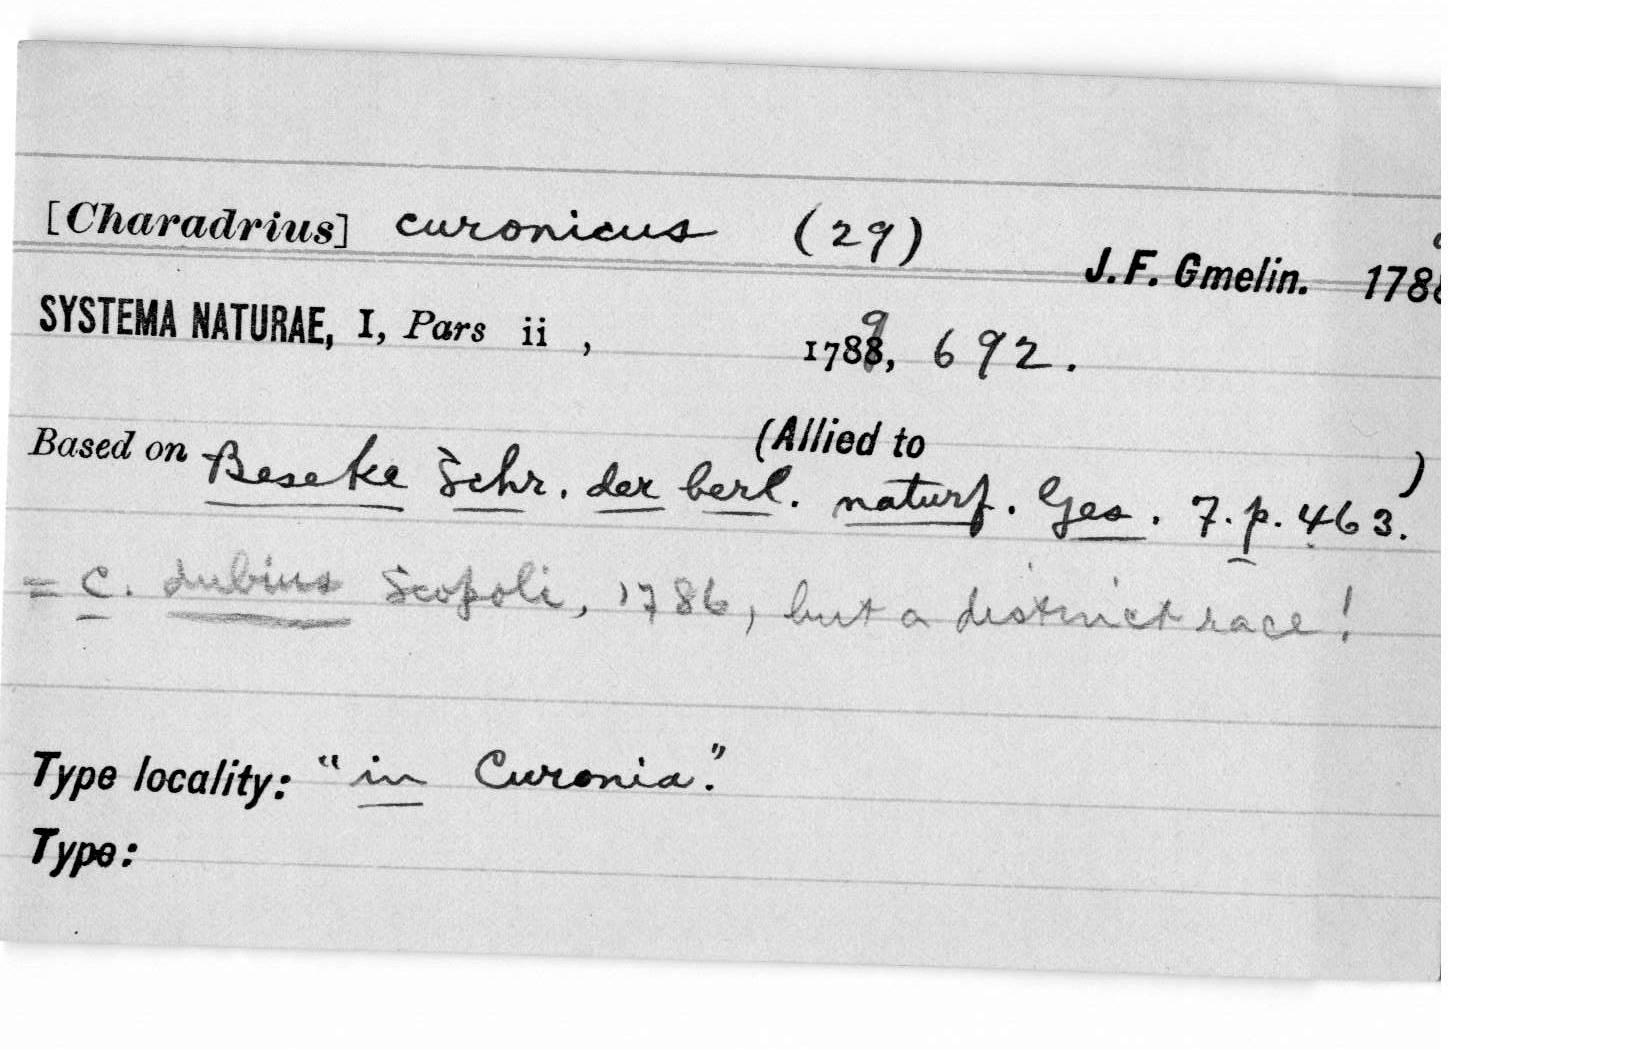 [Charadrius] curonicus (29)
J. F. Gmelin. 178
SYSTEMA NATURAE, I, Pars ii , 1789, 692.
(Allied to )
Based on Beseke Schr. der berl. naturf. Ges. 7. p. 463.
= C. dubius Scopoli, 1786, but a distinct race!
Type locality: "in Curonia."
Type: